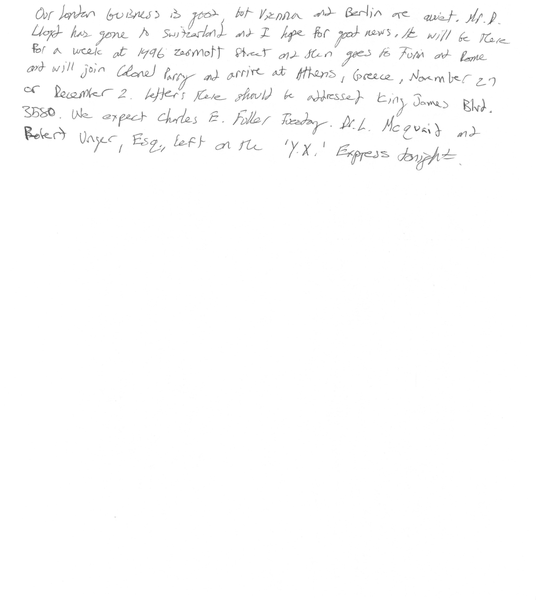 Our London business is good, but Vienna and Berlin are quiet. Mr. D.
Lloyd has gone to Switzerland and I hope for good news. He will be there
for a week at 1496 Zermott Street and then goes to Turin and Rome
and will join Colonel Parry and arrive at Athens, Greece, November 27
or December 2. Letters there should be addressed King James Blvd.
3580. We expect Charles E. Fuller Tuesday. Dr. L. McQuaid and
Robert Unger, Esq., left on the 'Y.X.' Express tonight.